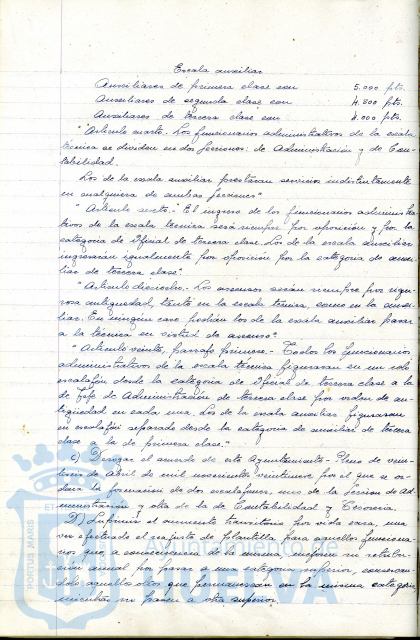 Escala auxiliar
Auxiliares de primera clase con 5.000 pts.
Auxiliares de segunda clase con 4.500 pts.
Auxiliares de tercera clase con 4.000 pts.
"Artículo cuarto. Los funcionarios administrativos de la escala
técnica se dividen en dos secciones: de Administración y de Con-
tabilidad.
Los de la escala auxiliar prestarán servicios indistintamente
en cualquiera de ambas secciones"
"Artículo sexto.- El ingreso de los funcionarios administra-
tivos de la escala técnica será siempre por oposición y por la
categoría de Oficial de tercera clase. Los de la escala auxiliar
ingresarán igualmente por oposición por la categoría de auxi-
liar de tercera clase."
"Artículo dieciocho.- Los ascensos serán siempre por rigu-
rosa antigüedad, tanto en la escala técnica, como en la auxi-
liar. En ningún caso podrán los de la escala auxiliar pasar
a la técnica en virtud de ascenso"
"Artículo veinte, párrafo primero.- Todos los funcionarios
administrativos de la escala técnica figurarán en un solo
escalafón desde la categoría de Oficial de tercera clase a la
de Jefe de Administración de tercera clase por orden de an-
tigüedad en cada una. Los de la escala auxiliar figurarán
en escalafón separado desde la categoría de auxiliar de tercera
clase a la de primera clase."
c) Derogar el acuerdo de este Ayuntamiento Pleno de vein-
de abril de mil novecientos veintinueve por el que se
la formación de dos escalafones, uno de la sección de Ad-
ministración y otro de la de Contabilidad y Tesorería.
D) Suprimir el aumento transitorio por vida cara, una
vez efectuado el reajuste de plantilla para aquellos funciona-
rios que, a consecuencia de la misma, mejoren su retribu-
ción anual por pasar a una categoría superior, conservan-
dolo aquellos otros que permanezcan en la misma categoría
mientras no pasen a otra superior.
PORTUS MARIS
ET